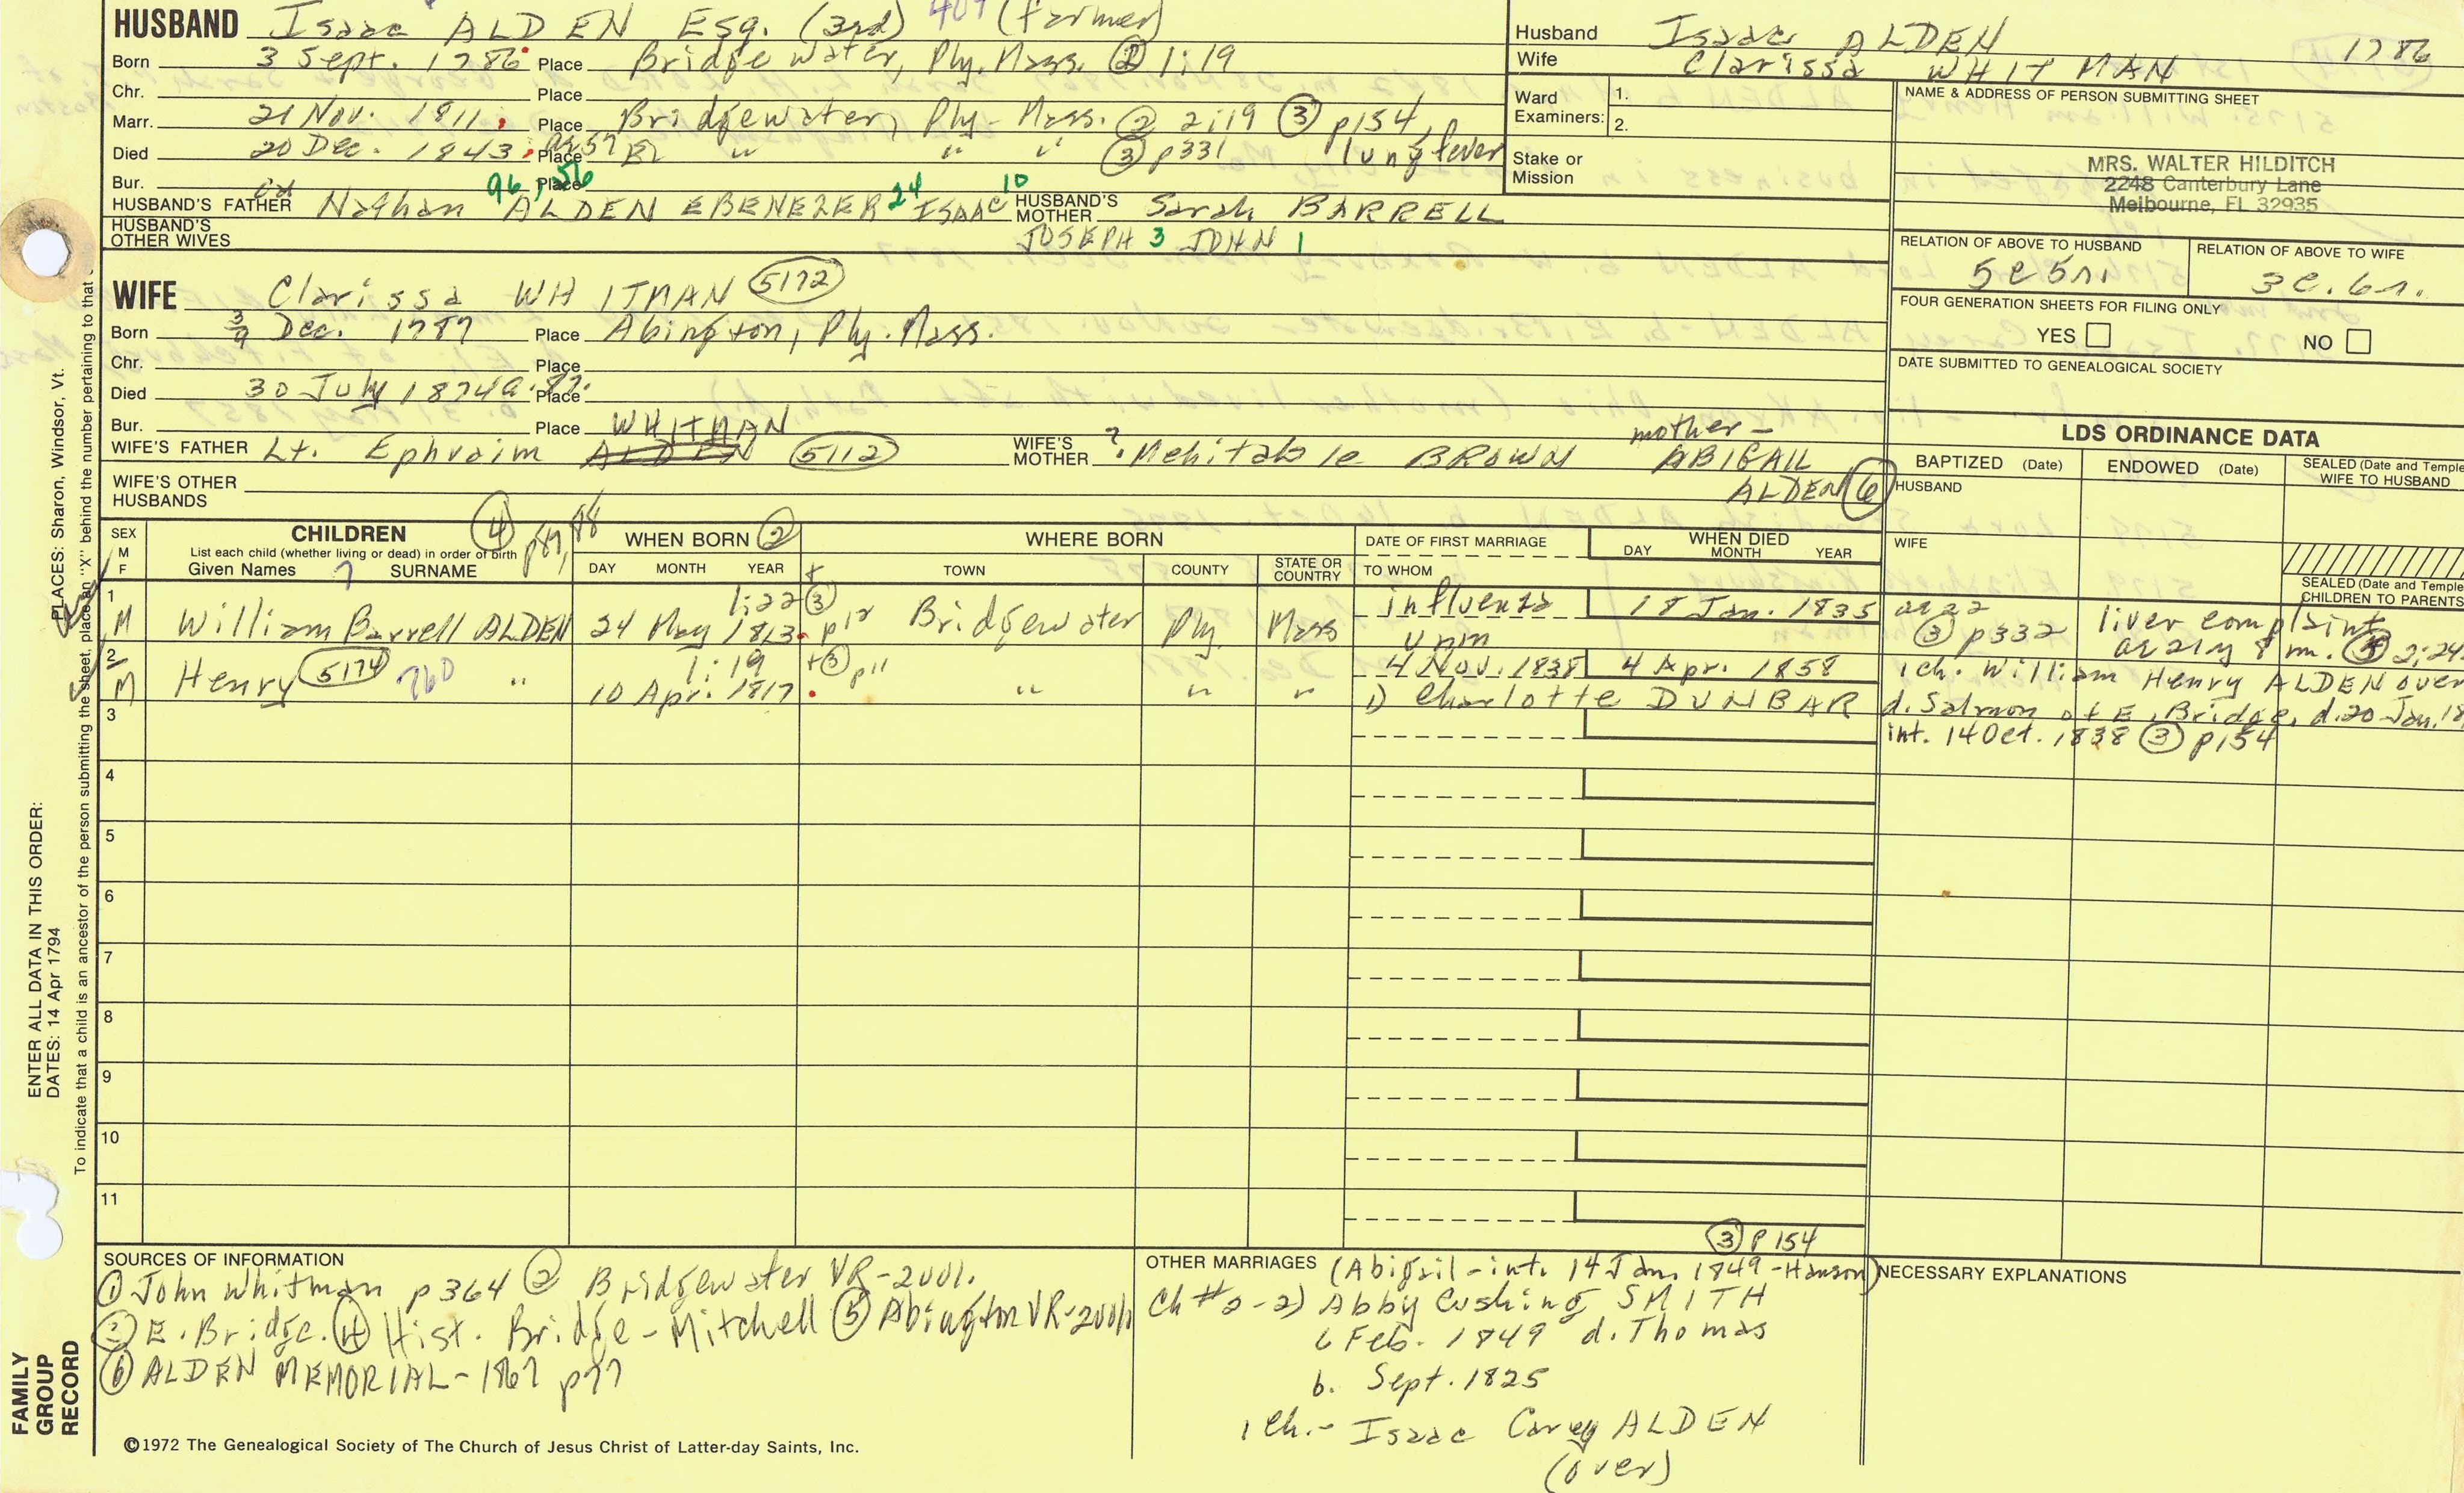 HUSBAND Isaac ALDEN Esq. (3rd) 407 (farmer)
Born 3 Sept. 1786 Place Bridgewater, Ply. Mass. ② 1:19
Chr. Place
Marr. 21 Nov. 1811 Place Bridgewater, Ply- Mass. ② 2:19 ③ p154
Died 20 Dec. 1843 Place " " " ③ p331 lung fever
Bur. Place
96, 56 24 10
HUSBAND'S FATHER Nathan ALDEN EBENEZER ISAAC HUSBAND'S MOTHER Sarah BARRELL
HUSBAND'S OTHER WIVES JOSEPH 3 JOHN 1
Husband Isaac ALDEN 1786
Wife Clarissa WHITMAN
Ward Examiners: 1.
2.
Stake or Mission
NAME & ADDRESS OF PERSON SUBMITTING SHEET
MRS. WALTER HILDITCH
2248 Canterbury Lane
Melbourne, FL 32935
RELATION OF ABOVE TO HUSBAND RELATION OF ABOVE TO WIFE
5c5r. 3c.6r.
FOUR GENERATION SHEETS FOR FILING ONLY
YES NO
DATE SUBMITTED TO GENEALOGICAL SOCIETY
WIFE Clarissa WHITMAN 5172
Born 3/9 Dec. 1787 Place Abington, Ply. Mass.
Chr. Place
Died 30 July 1874 a. 87. Place
Bur. Place WHITMAN
WIFE'S FATHER Lt. Ephraim ALDEN 5112 WIFE'S MOTHER ? Mehitable BROWN mother- ABIGAIL ALDEN ⑥
WIFE'S OTHER HUSBANDS
LDS ORDINANCE DATA
BAPTIZED (Date) ENDOWED (Date) SEALED (Date and Temple WIFE TO HUSBAND
HUSBAND
WIFE
SEALED (Date and Temple CHILDREN TO PARENTS
SEX M F
CHILDREN ④ p87, 88
List each child (whether living or dead) in order of birth
Given Names SURNAME
WHEN BORN ②
DAY MONTH YEAR
WHERE BORN
TOWN COUNTY STATE OR COUNTRY
DATE OF FIRST MARRIAGE
TO WHOM
WHEN DIED
DAY MONTH YEAR
1 1:22 ③ influenza 18 Jan. 1835 ae 22 liver complaint
M William Barrell ALDEN 24 May 1813 p12 Bridgewater Ply. Mass unm ③ p332 ae 21y 8m. 2:24
2 1:19 + ③ p11 4 Nov. 1838 4 Apr. 1858 1 ch. William Henry ALDEN over
M Henry 5174 760 " 10 Apr. 1817 " " " 1) Charlotte DUNBAR d. Salmon of E. Bridge. d. 20 Jan. 18
3 int. 14 Oct. 1838 ③ p154
4
5
6
7
8
9
10
11
SOURCES OF INFORMATION
① John Whitman p364 ② Bridgewater VR-2vol.
③ E. Bridge. ④ Hist. Bridge-Mitchell ⑤ Abington VR-2vol
⑥ ALDEN MEMORIAL-1867 p77
OTHER MARRIAGES ③ p154
(Abigail-int. 14 Jan. 1849-Hanson)
Ch #2-2) Abby Cushing SMITH
6 Feb. 1849 d. Thomas
b. Sept. 1825
1 Ch.- Isaac Carey ALDEN
(over)
NECESSARY EXPLANATIONS
©1972 The Genealogical Society of The Church of Jesus Christ of Latter-day Saints, Inc.
FAMILY GROUP RECORD
ENTER ALL DATA IN THIS ORDER:
DATES: 14 Apr 1794
PLACES: Sharon, Windsor, Vt.
To indicate that a child is an ancestor of the person submitting the sheet, place an "X" behind the number pertaining to that